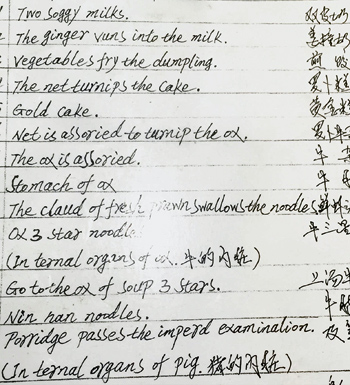 Two soggy milks. 双
The ginger vuns into the milk. 姜
Vegetables fry the dumpling. 煎
The net turnips the cake. 萝卜糕
Gold cake. 黄金糕
Net is assoried to turnip the ox. 萝卜牛
The ox is assoried. 牛
Stomach of ox 牛
The claud of fresh prawn swallows the noodles 鲜虾
Ox 3 star noodle 牛三星
(In ternal organs of ox. 牛的内脏)
Go to the ox of soup 3 stars. 上汤牛
Nin han noodles. 牛
Porridge passes the imperd examinalion. 及
(In ternal organs of pig. 猪的内脏)